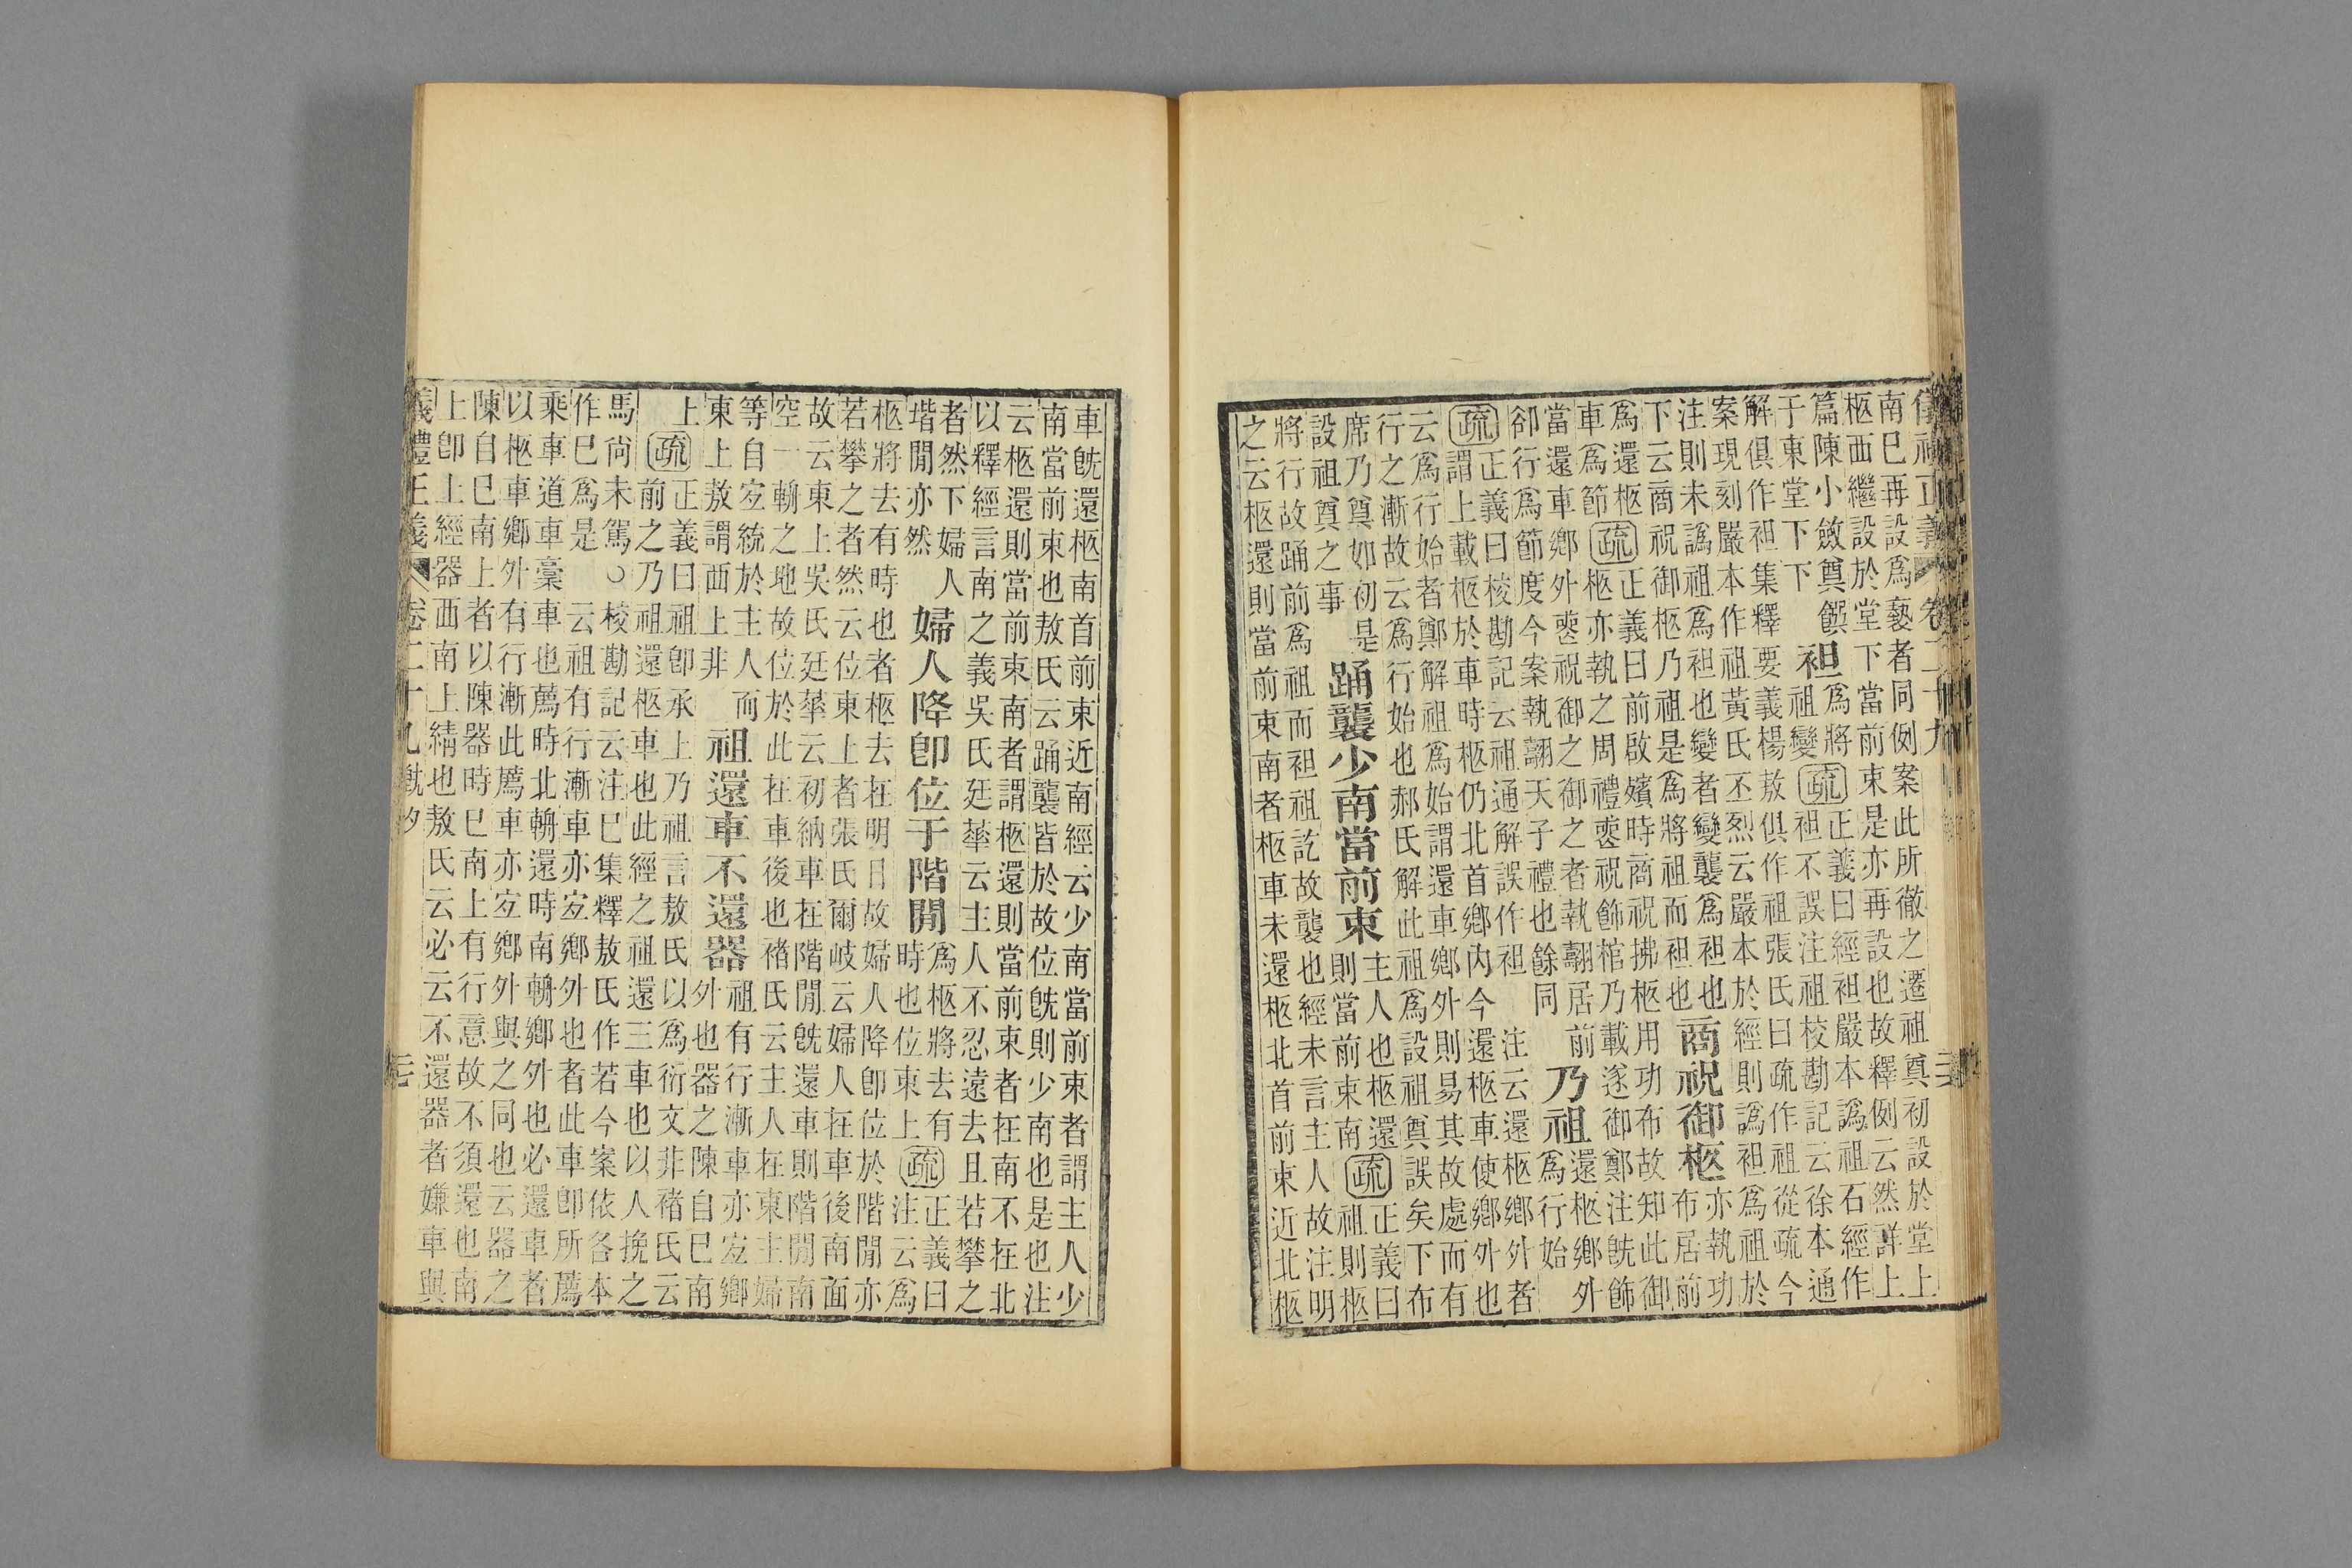 儀禮正義 卷二十九
南巳再設爲藝者同例案此所徹之遷祖奠初設於堂上
柩西繼設於堂下當前束是亦再設也故釋例云然詳上
篇陳小斂奠饌
于東堂下下
袒
爲將
祖變
疏
正義曰經袒嚴本譌祖石經作
袒不誤注祖校勘記云徐本通
解俱作袒集釋要義楊敖俱作祖張氏曰疏作祖從疏今
案現刻嚴本作祖黃氏丕烈云嚴本於經則譌袒爲祖於
注則未譌祖爲袒也變者變襲爲袒也
下云商祝御柩乃祖是爲將祖而袒也
商祝御柩
亦執功
布居前
爲還柩
車爲節
疏
正義曰前啟殯時商祝拂柩用功布故知此御
柩亦執之周禮喪祝飾棺乃載遂御鄭注旣飾
當還車鄉外喪祝御之御之者執翿居前
卻行爲節度今案執翿天子禮也餘同
乃祖
還柩鄉外
爲行始
疏
正義曰校勘記云祖通解誤作袒 注云還柩鄉外者
謂上載柩於車時柩仍北首鄉內今還柩車使鄉外也
云爲行始者鄭解祖爲始謂還車鄉外則易其故處而有
行之漸故云爲行始也郝氏解此祖爲設祖奠誤矣下布
席乃奠如初是
設祖奠之事
踊襲少南當前束
主人也柩還
則當前束南
疏
正義曰
祖則柩
將行故踊前爲祖而袒祖訖故襲也經未言主人故注明
之云柩還則當前束南者柩車未還柩北首前束近北柩
車旣還柩南首前束近南經云少南當前束者謂主人少
南當前束也敖氏云踊襲皆於故位旣則少南也是也注
云柩還則當前束南者謂柩還則當前束者在南不在北
以釋經言南之義吳氏廷華云主人不忍遠去且若攀之
者然下婦人
堦閒亦然
婦人降卽位于階閒
爲柩將去有
時也位東上
疏
正義曰
注云爲
柩將去有時也者柩去在明日故婦人降卽位於階閒亦
若攀之者然云位東上者張氏爾岐云婦人在車後南面
故云東上吳氏廷華云初納車在階閒旣還車則階閒南
空一輈之地故位於此在車後也褚氏云主人在東主婦
等自宐統於主人而
東上敖謂西上非
祖還車不還器
祖有行漸車亦宐鄉
外也器之陳自巳南
上
疏
正義曰祖卽承上乃祖言敖氏以爲衍文非褚氏云
前之乃祖還柩車也此經之祖還三車也以人挽之
馬尚未駕○校勘記云注巳集釋敖氏作若今案依各本
作巳爲是 云祖有行漸車亦宐鄉外也者此車卽所薦
乘車道車槀車也薦時北輈還時南輈鄉外也必還車者
以柩車鄉外有行漸此薦車亦宐鄉外與之同也云器之
陳自巳南上者以陳器時巳南上有行意故不須還也南
上卽上經器西南上綪也敖氏云必云不還器者嫌車與
儀禮正義 卷二十九 旣夕